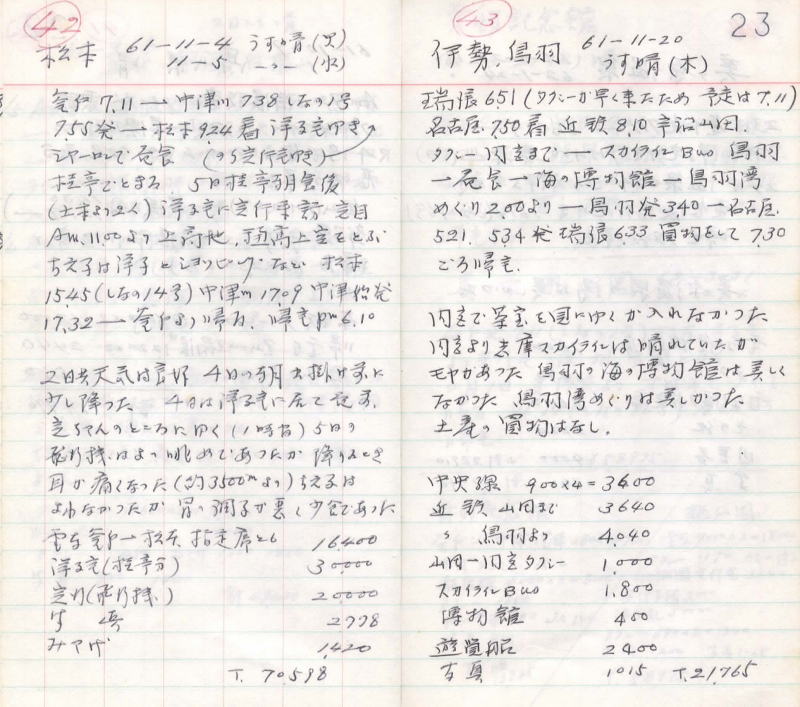 42
松本 61-11-4 うす晴(火)
11-5 〃 (水)
釜戸 7.11 → 中津川 7.38 しなの1号
7.55発 → 松本 9.24着 洋子宅ゆき
シャーロンで昼食 (のち定行宅ゆき)
桂亭でとまる 5日桂亭朝食後
(土本より近く) 洋子宅に定行来訪 定昌
Am.11.00より上高地、穂高上空をとぶ
ちえ子は洋子とショッピングなど 松本
15.45 (しなの14号) 中津川 17.09 中津始発
17.32 → 釜戸より帰る. 帰宅pm.6.10
2日共天気は良好 4日の朝出掛け前に
少し降った 4日は洋子宅に居て
定ちゃんのところにゆく (1時間) 5日の
飛行機はよい眺めであったが 降りるとき
耳が痛くなった (約3500mより) ちえ子は
よわなかったが 胃の調子が悪く少食であった
電車釜戸→松本 指定席とも 16400
洋子宅(桂亭分) 30000
定行(飛行機) 20000
2778
みやげ 1420
T. 70.598
43
23
伊勢、鳥羽 61-11-20
うす晴(木)
瑞浪 6.51 (タクシーが早く来たため 予定は7.11)
名古屋 7.50着 近鉄 8.10 宇治山田.
タクシー 内宮まで → スカイラインBus 鳥羽
→ 昼食 → 海の博物館 → 鳥羽湾
めぐり 2.00より → 鳥羽発 3.40 → 名古屋.
5.21. 5.34発 瑞浪 6.33 買物をして 7.30
ごろ帰宅.
内宮で 宝を見にゆくが入れなかった
内宮より 志摩スカイラインは晴れていたが
モヤがあった 鳥羽の海の博物館は美しく
なかった 鳥羽湾めぐりは美しかった
土産の買物はなし.
中央線 900×4= 3600
近鉄 山田まで 3640
〃 鳥羽より 4.040
山田→内宮タクシー 1.000
スカイラインBus 1.800
博物館 400
遊覧船 2400
写真 1015 T.21.765